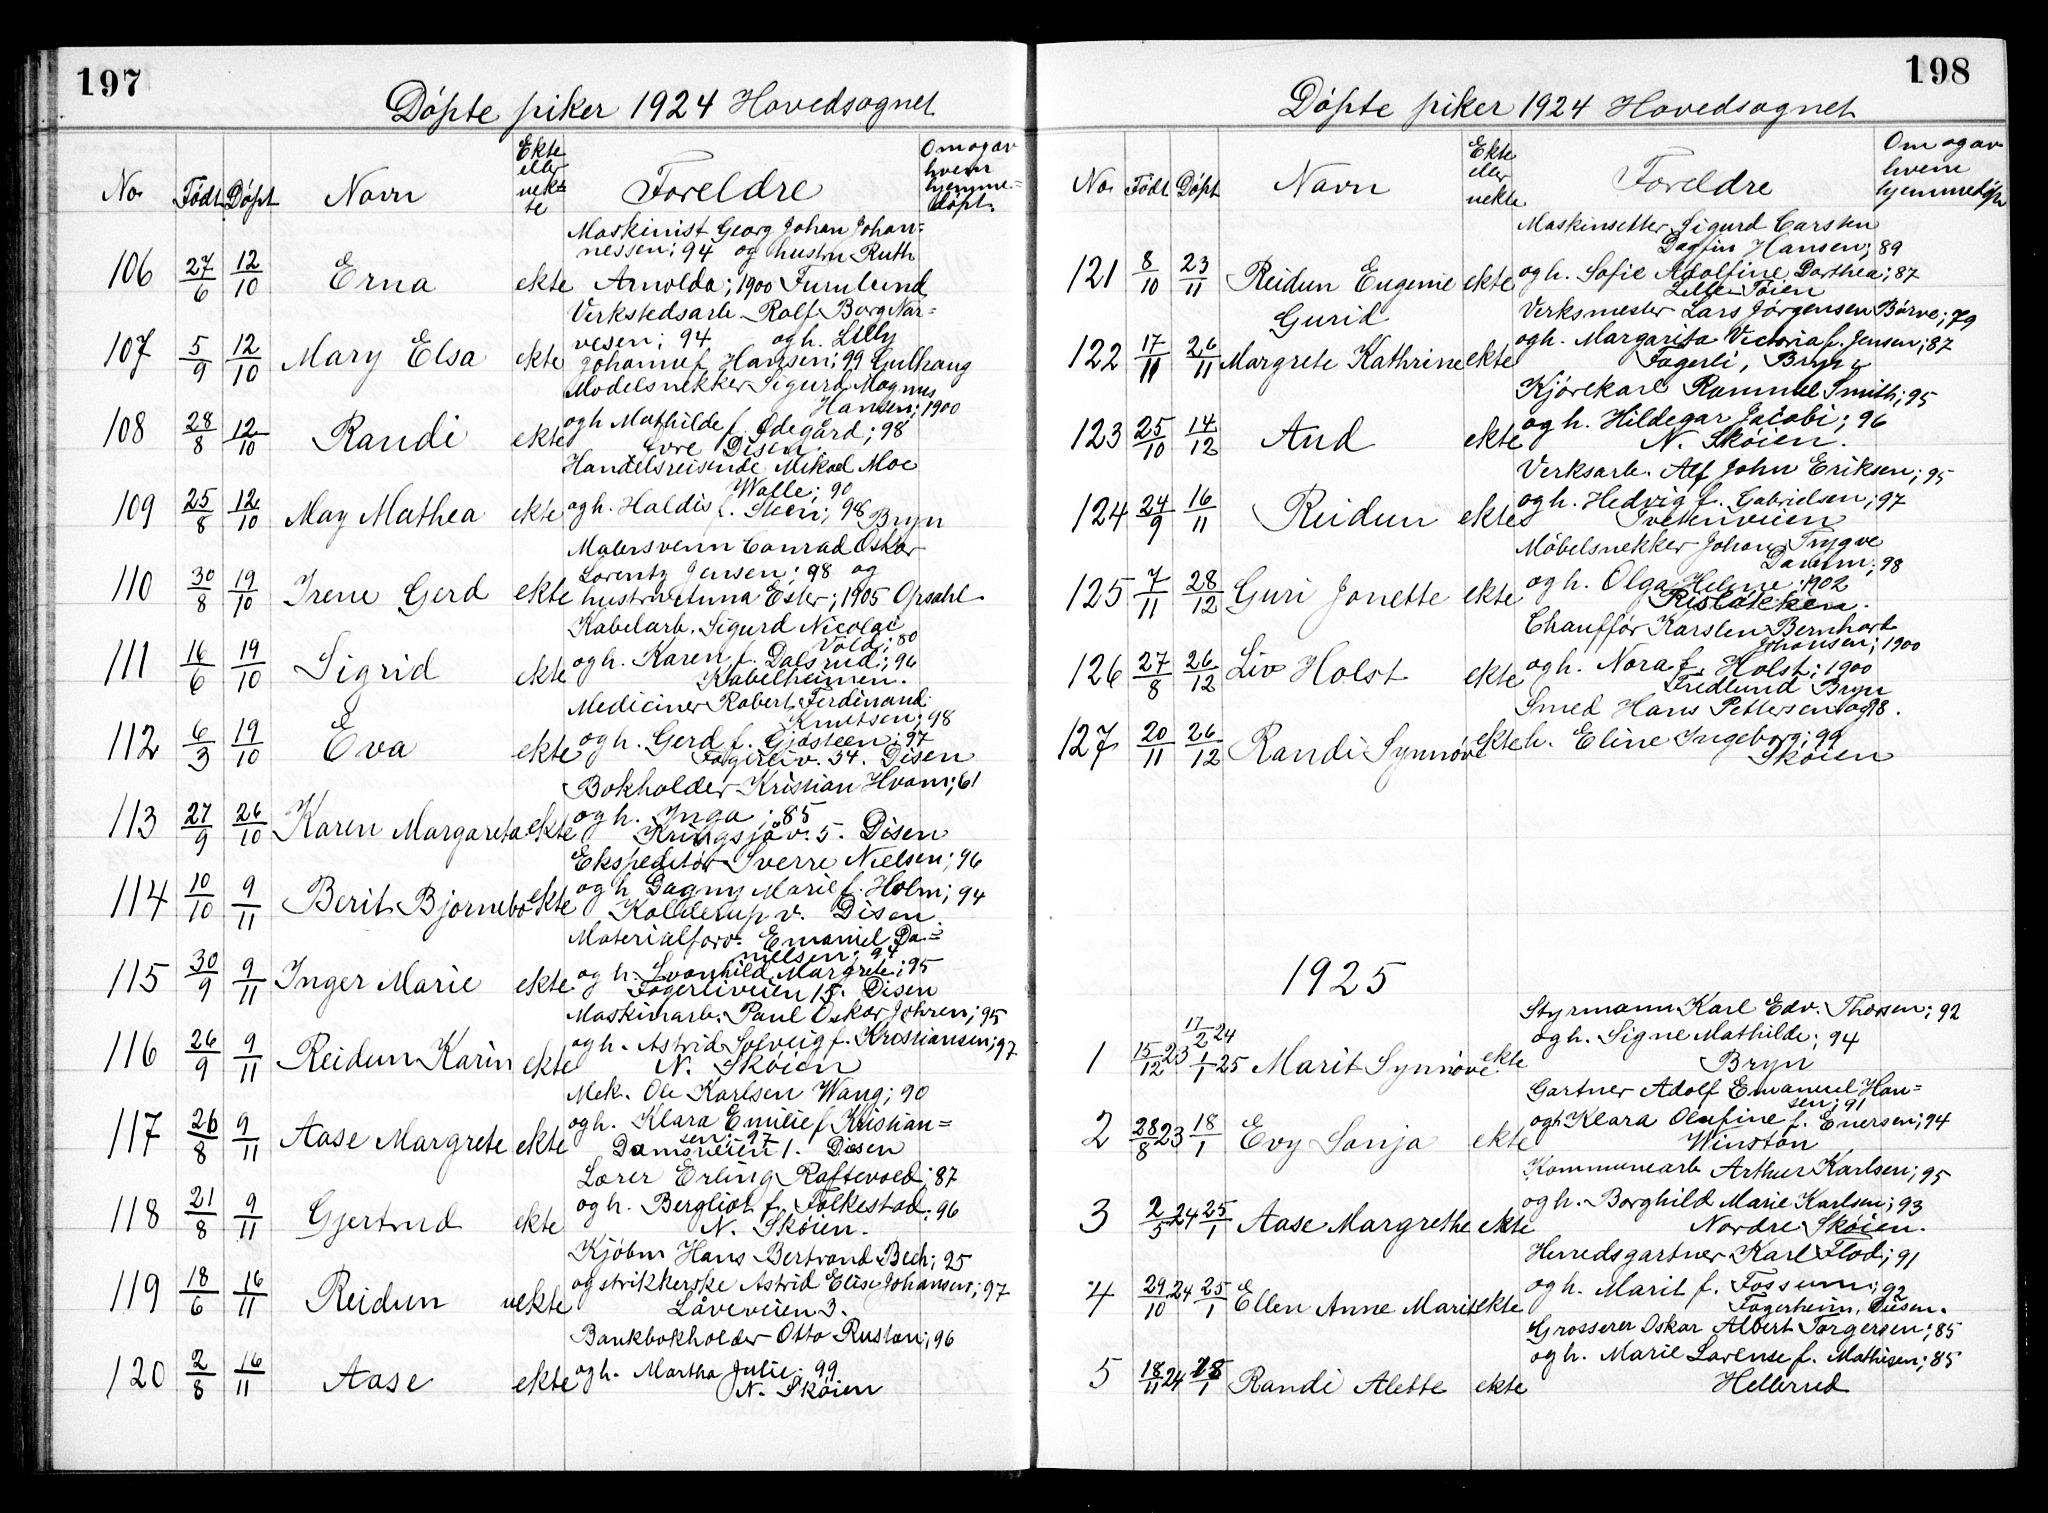 197
Døpte piker 1924 Hovedsognet
No. Født Døpt Navn Ekte eller uekte Foreldre Om og av hvem hjemmedøpt.
Maskinist Georg Johan Johan=
nessen; 94 og hustru Ruth
106 27/6 12/10 Erna ekte Arnolda; 1900 Furulund
Verkstedsarb. Rolf Borg Nar=
vesen; 94 og h. Lilly
107 5/9 12/10 Mary Elsa ekte Johanne f. Hansen; 99 Gulhaug
Modelsnekker Sigurd Magnus
Hansen; 1900
108 28/8 12/10 Randi ekte og h Mathilde f. Ødegård; 98
Øvre Disen
Handelsreisende Mikael Moe
Walle; 90
109 25/8 12/10 May Mathea ekte og h. Haldis f. Steen; 98 Bryn
Malersvenn Conrad Oskar
Lorentz Jensen; 98 og
110 30/8 19/10 Irene Gerd ekte hustru Anna Ester; 1905 Opsahl
Kabelarb. Sigurd Nicolai
Vold; 80
111 16/6 19/10 Sigrid ekte og h. Karen f. Dalsrud; 96
Kabelheimen.
Mediciner Robert Ferdinand
Knutsen; 98
112 6/3 19/10 Eva ekte og h. Gerd f. Gjøsteen; 97
Fagerliv. 34. Disen
Bokholder Kristian Hvam; 61
113 27/9 26/10 Karen Margareta ekte og h. Inga; 85
Kringsjåv. 5. Disen
Ekspeditør Sverre Nielsen; 96
114 10/10 9/11 Berit Bjørnebo ekte og h Dagny Marie f. Holm; 94
Kolderup v. Disen.
Materialforv. Emaniel Da=
nielsen; 94
115 30/9 9/11 Inger Marie ekte og h. Svanhild Margrete; 95
Fagerliveien 15. Disen
Maskinarb. Paul Oskar Johren; 95
116 26/9 9/11 Reidun Karin ekte og h. Astrid Solveig f. Kristiansen; 97
N. Skøien
Mek. Ole Karlsen Wang; 90
117 26/8 9/11 Aase Margrete ekte og h. Klara Emilie f Kristian=
sen; 97
Damsveien 1. Disen
Lærer Erling Raftevold; 87
118 21/8 9/11 Gjertrud ekte og h. Bergliot f. Folkestad; 96
N. Skøien.
Kjøbm Hans Bertrand Bech; 95
119 18/6 16/11 Reidun uekte og strikkerske Astrid Elise Johansen; 97
Låveveien 3.
Bankbokholder Otto Rustan; 96
120 2/8 16/11 Aase ekte og h. Martha Julie; 99
N. Skøien
198
Døpte piker 1924 Hovedsognet
No. Født Døpt Navn Ekte eller uekte Foreldre Om og av hvem hjemmedøpt
Maskinsetter Sigurd Carsten
Dagfin Hansen; 89
121 8/10 23/11 Reidun Eugenie Gurid ekte og h. Sofie Adolfine Dorthea; 87
Lille Tøien
Verksmester Lars Jørgensen Børve; 79
122 17/11 26/11 Margrete Kathrine ekte og h. Margarita Victoria f. Jensen; 87
Fagerli, Bryn
Kjørekarl Rommel Smith; 95
123 25/10 14/12 Aud ekte og h. Hildegar Jacobi; 96
N. Skøien.
Verksarb. Alf John Eriksen; 95
124 24/9 16/11 Reidun ekte og h. Hedvig f. Gabrielsen; 97
Tvetenveien
Møbelsnekker Johan Trygve
Davem; 98
125 7/11 28/12 Guri Jonette ekte og h. Olga Helene; 1902
Risløkken.
Chauffør Karsten Bernhard
Johansen; 1900
126 27/8 26/12 Liv Holst ekte og h. Nora f. Holst; 1900
Fredlund Bryn
Smed Hans Pettersen og 98.
127 20/11 26/12 Randi Synnøve ekte h. Eline Ingeborg; 99
Skøien
1925
Styrmann Karl Edv. Thorsen; 92
17/2 24 og h. Signe Mathilde; 94
1 15/12 23 1/1 25 Marit Synnøve ekte Bryn
Gartner Adolf Emanuel Han=
sen; 91
2 28/8 23 18/1 Evy Sonja ekte og h Klara Olufine f. Enersen; 94
Winston
Kommunearb Arthur Karlsen; 95
3 2/5 24 25/1 Aase Margrethe ekte og h. Borghild Marie Karlsen; 93
Nordre Skøien.
Herredsgartner Karl Flod; 91
4 29/10 24 25/1 Ellen Anne Marit ekte og h. Marit f. Fossum; 92
Fagerheim, Disen.
Grosserer Oskar Albert Torgersen; 85
5 18/11 24 /1 Randi Alette ekte og h. Marie Lorense f. Mathisen; 85
Hellerud